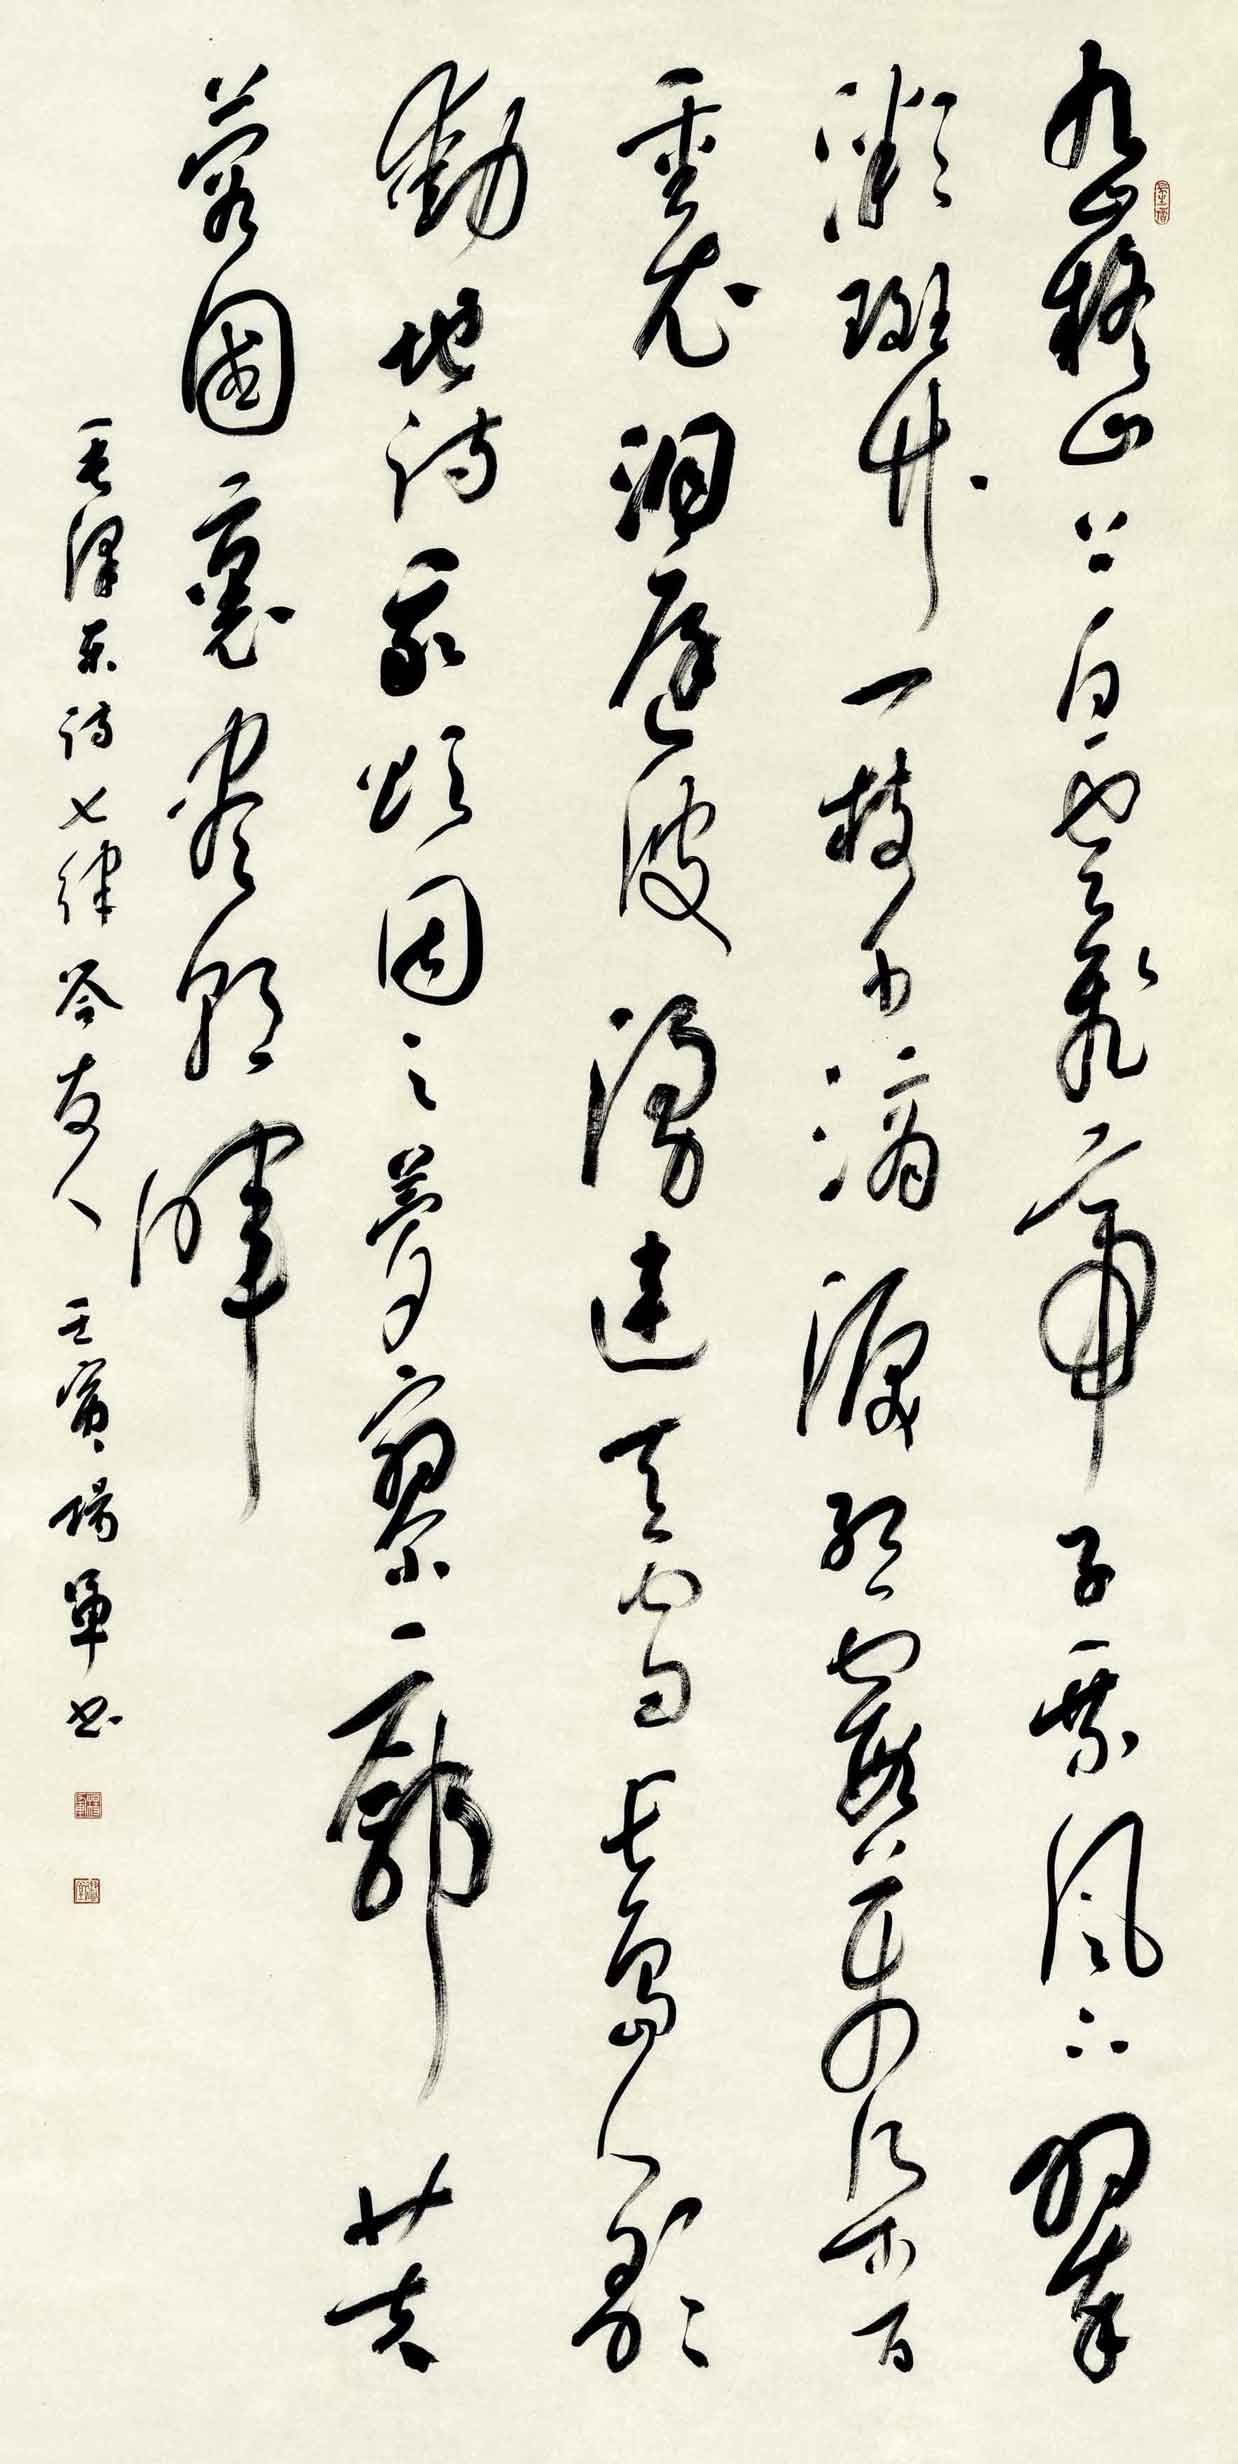 九嶷山上白雲飛帝子乘風下翠
微斑竹一枝千滴淚紅霞萬朵百
重衣洞庭波湧連天雪長島人歌
動地詩我欲因之夢寥廓芙
蓉國裏盡朝暉
毛澤東詩七律答友人 壬寅楊軍書